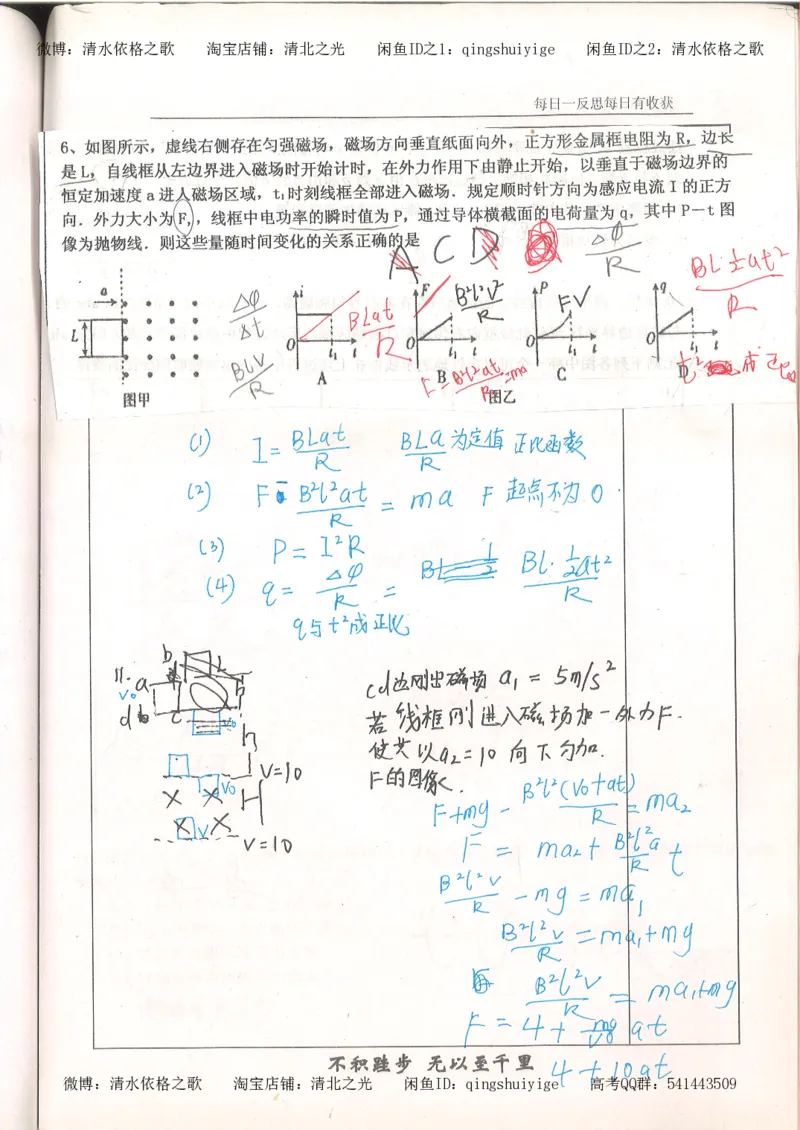 微博：清水依格之歌 淘宝店铺：清北之光 闲鱼ID之1：qingshuiyige 闲鱼ID之2：清水依格之歌
每日一反思每日有收获
6、如图所示，虚线右侧存在匀强磁场，磁场方向垂直纸面向外，正方形金属框电阻为 R，边长
是 L，自线框从左边界进入磁场时开始计时，在外力作用下由静止开始，以垂直于磁场边界的
恒定加速度 a 进入磁场区域，t₁时刻线框全部进入磁场．规定顺时针方向为感应电流 I 的正方
向．外力大小为 F，线框中电功率的瞬时值为 P，通过导体横截面的电荷量为 q，其中 P－t 图
像为抛物线．则这些量随时间变化的关系正确的是
A C D
ΔΦ/R
BL·½at²/R
a
L
图甲
Δφ/Δt
BLV/R
i O t₁ t A
BLat/R
F O t₁ t B
B²l²V/R
F=B²l²at/R=ma
P O t₁ t C
FV
q O t₁ t D
t² 成正比
图乙
(1) I=BLat/R BLa/R 为定值 正比函数
(2) F B²l²at/R = ma F 起点不为 0
(3) P=I²R
(4) q= Δφ/R = BL·½at²/R
q与t²成正比
11. a b
v₀
d c v₀
h
V=10
v₀
H
V
V=10
cd边刚出磁场 a₁ = 5m/s²
若线框刚进入磁场加一外力F.
使其以a₂=10 向下匀加.
F的图像.
F+mg - B²l²(V₀+at)/R =ma₂
F = ma₂+ B²l²a/R t
B²l²V/R -mg = ma₁
B²l²V/R =ma₁+mg
B²l²V/R = ma₁+mg
F=4+ mg/V₀ at
4+10at
不积跬步 无以至千里
微博：清水依格之歌 淘宝店铺：清北之光 闲鱼ID：qingshuiyige 高考QQ群：541443509